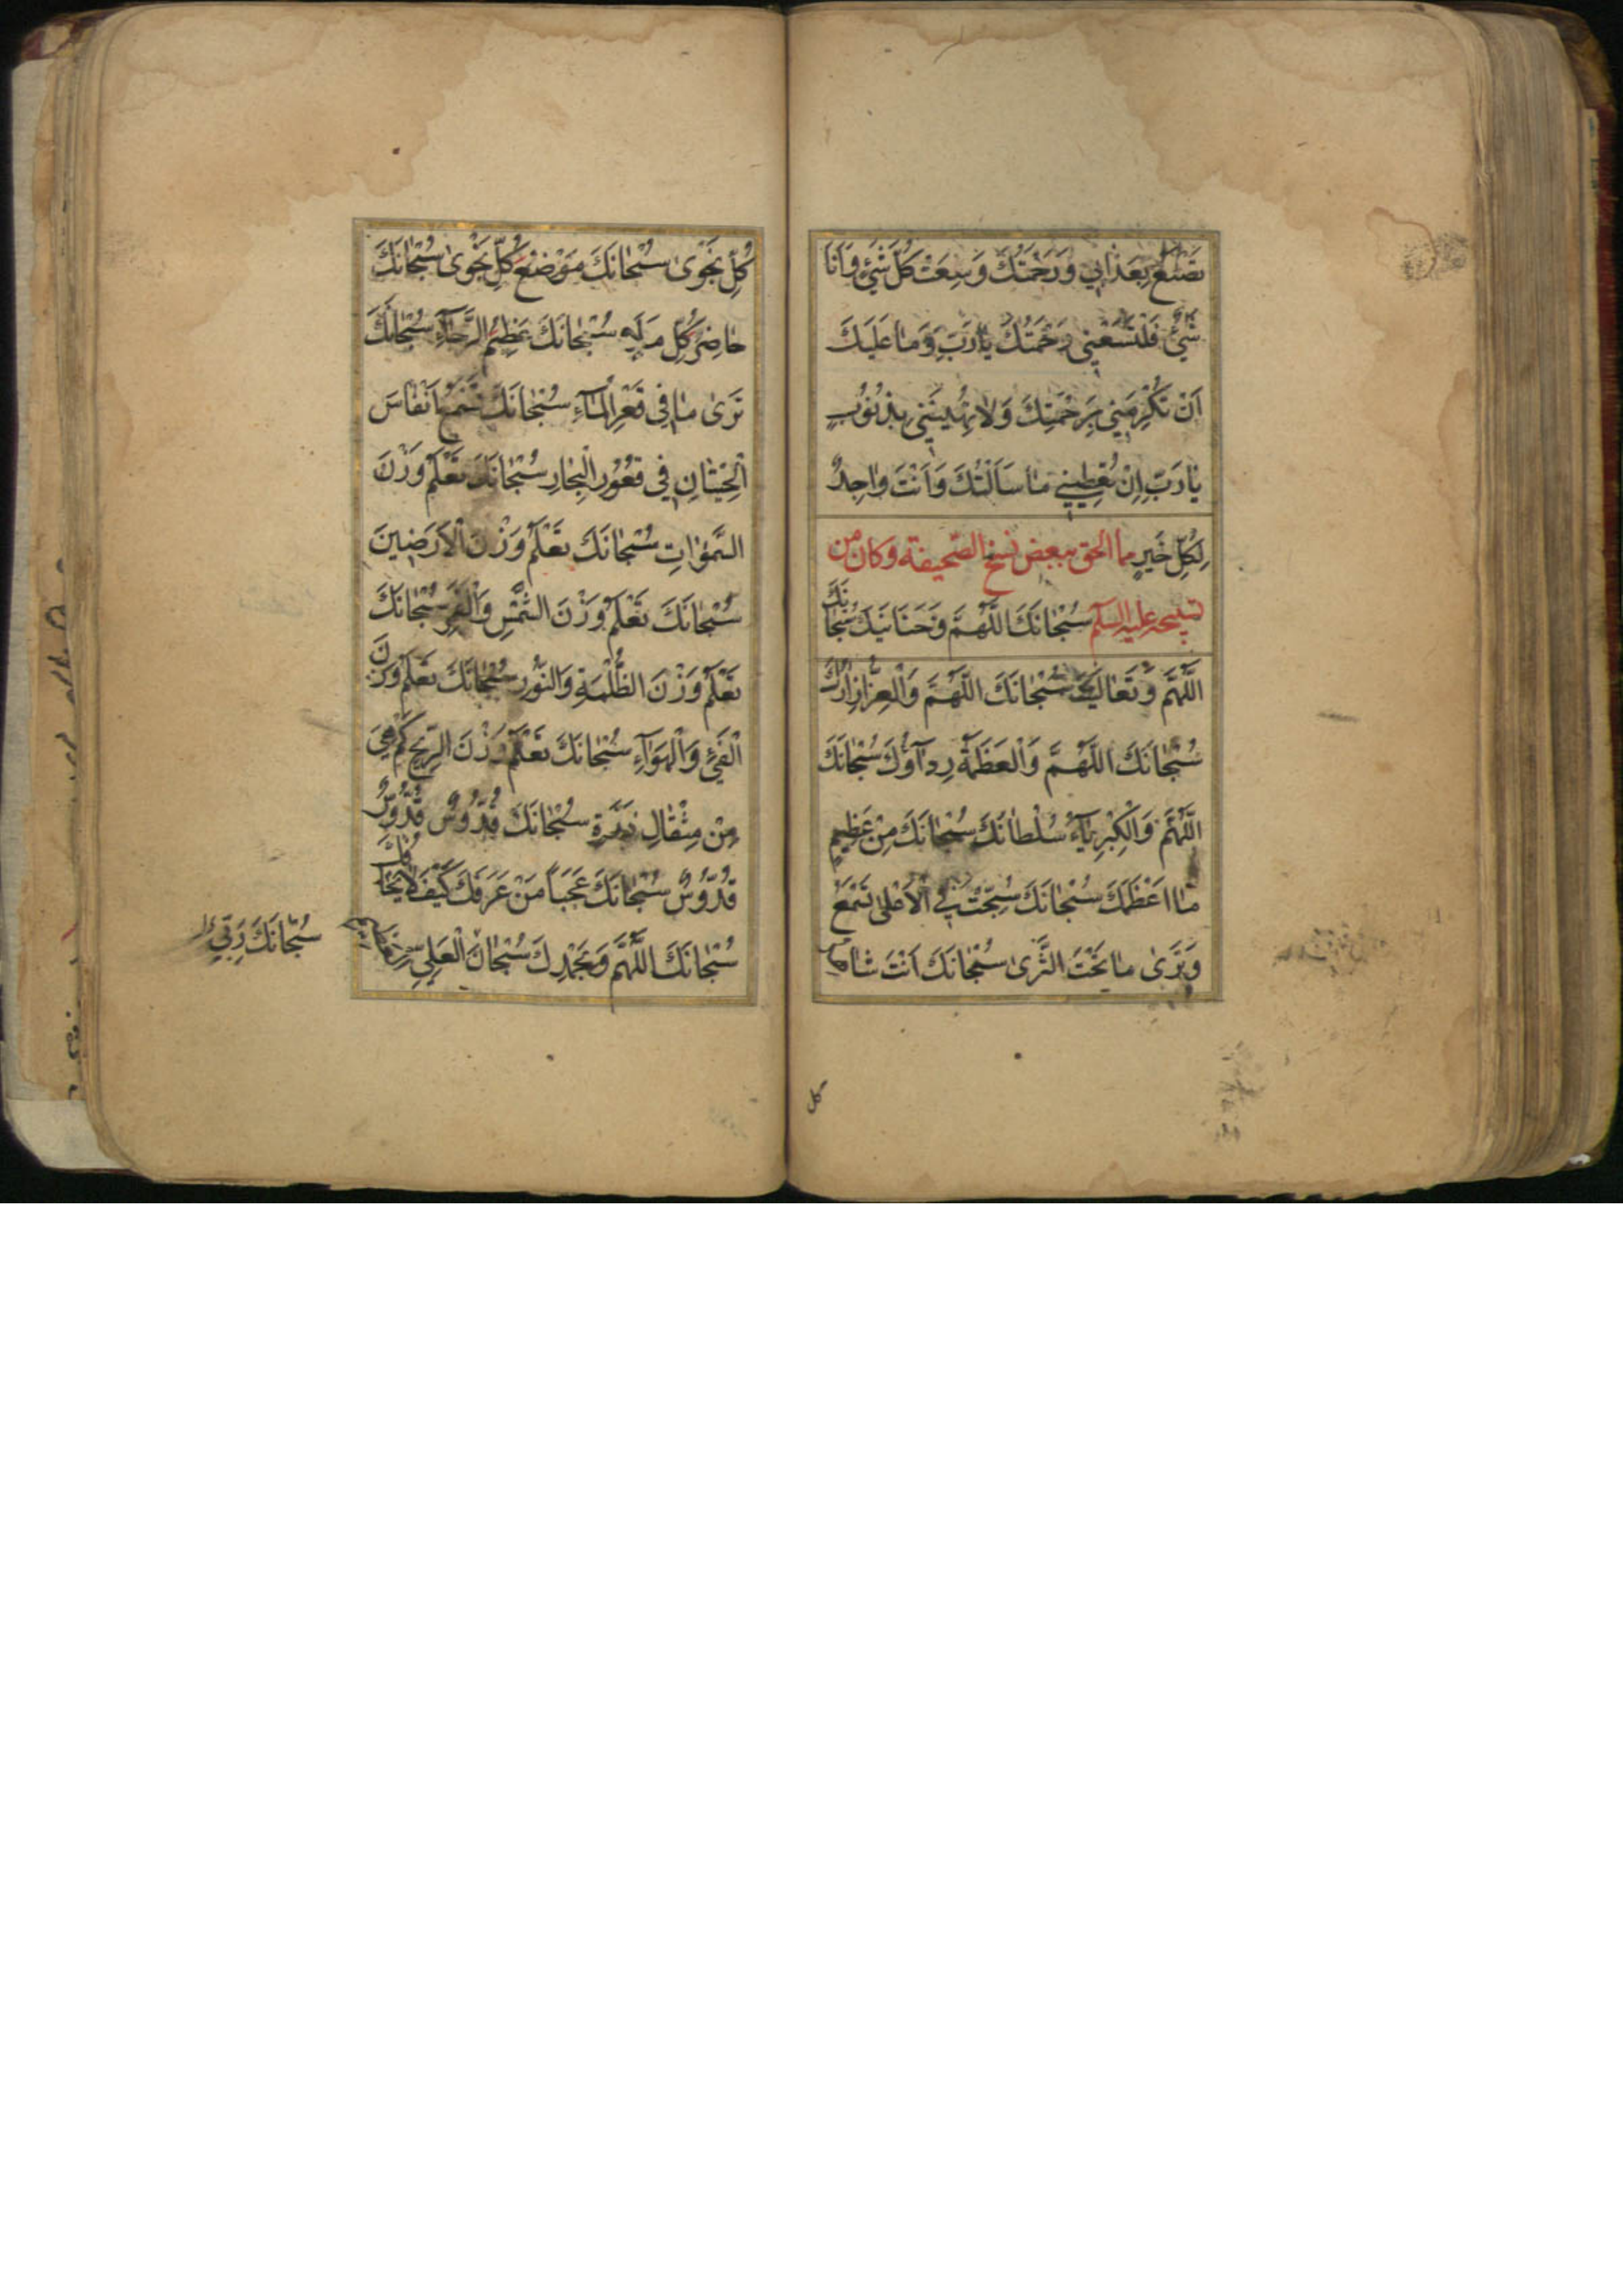 تصنع بعذابي ورحمتك وسعت كل شيء وانا
شيء فلتسعني رحمتك يا رب وما عليك
اَنْ تُكْرِمَني بِرَحْمَتِكَ وَلا تُهينَني بِذُنُوبٍ
يا رَبِّ اِنْ تُعْطِيني ما سَاَلْتُكَ وَاَنْتَ واجِدٌ
لِكُلِّ خَيرٍ مما الحق ببعض نسخ الصّحيفة وكان من
تسبيحه عليه السلم سُبْحانَكَ اللّهُمَّ وَحَنانَيْكَ سُبْحانَكَ
اللّهُمَّ وَتَعالَيْتَ سُبْحانَكَ اللّهُمَّ وَالْعِزُّ اِزارُكَ
سُبْحانَكَ اللّهُمَّ وَالْعَظَمَةُ رِداؤُكَ سُبْحانَكَ
اللّهُمَّ وَالْكِبْرِياءُ سُلْطانُكَ سُبْحانَكَ مِنْ عَظيمٍ
ما اَعْظَمَكَ سُبْحانَكَ سُبِّحْتَ فِي الْاَعْلى تَسْمَعُ
وَتَرى ما تَحْتَ الثَّرى سُبْحانَكَ اَنْتَ شاهد
كل
كُلِّ نَجْوى سُبْحانَكَ مَوْضِعُ كُلِّ نَجْوى سُبْحانَكَ
حاضِرُ كُلِّ مَلَإٍ سُبْحانَكَ عَظيمُ الرَّجاءِ سُبْحانَكَ
تَرى ما في قَعْرِ الْماءِ سُبْحانَكَ تَسْمَعُ اَنْفاسَ
الْحيتانِ في قُعُورِ الْبِحارِ سُبْحانَكَ تَعْلَمُ وَزْنَ
السَّمواتِ سُبْحانَكَ تَعْلَمُ وَزْنَ الْاَرَضينَ
سُبْحانَكَ تَعْلَمُ وَزْنَ الشَّمْسِ وَالْقَمَرِ سُبْحانَكَ
تَعْلَمُ وَزْنَ الظُّلْمَةِ وَالنُّورِ سُبْحانَكَ تَعْلَمُ وَزْنَ
الْفَيْءِ وَالْهَواءِ سُبْحانَكَ تَعْلَمُ وَزْنَ الرّيحِ كَمْ هِيَ
مِنْ مِثْقالِ ذَرَّةٍ سُبْحانَكَ قُدُّوسٌ قُدُّوسٌ
قُدُّوسٌ سُبْحانَكَ عَجَباً مَنْ عَرَفَكَ كَيْفَ لا يَخافُكَ
سُبْحانَكَ اللّهُمَّ وَبِحَمْدِكَ سُبْحانَ الْعَلِي
سُبْحانَكَ رَبّي